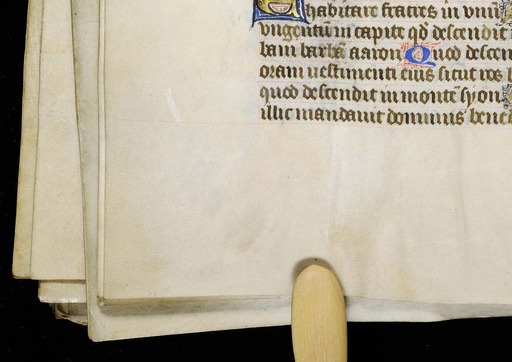 habitare fratres in unũ
ungentũ in capite qđ descendit
bam barbã aaron Quod descen
oram uestimenti eius sicut ros
quod descendit in montẽ syon
illic mandauit dominus bene